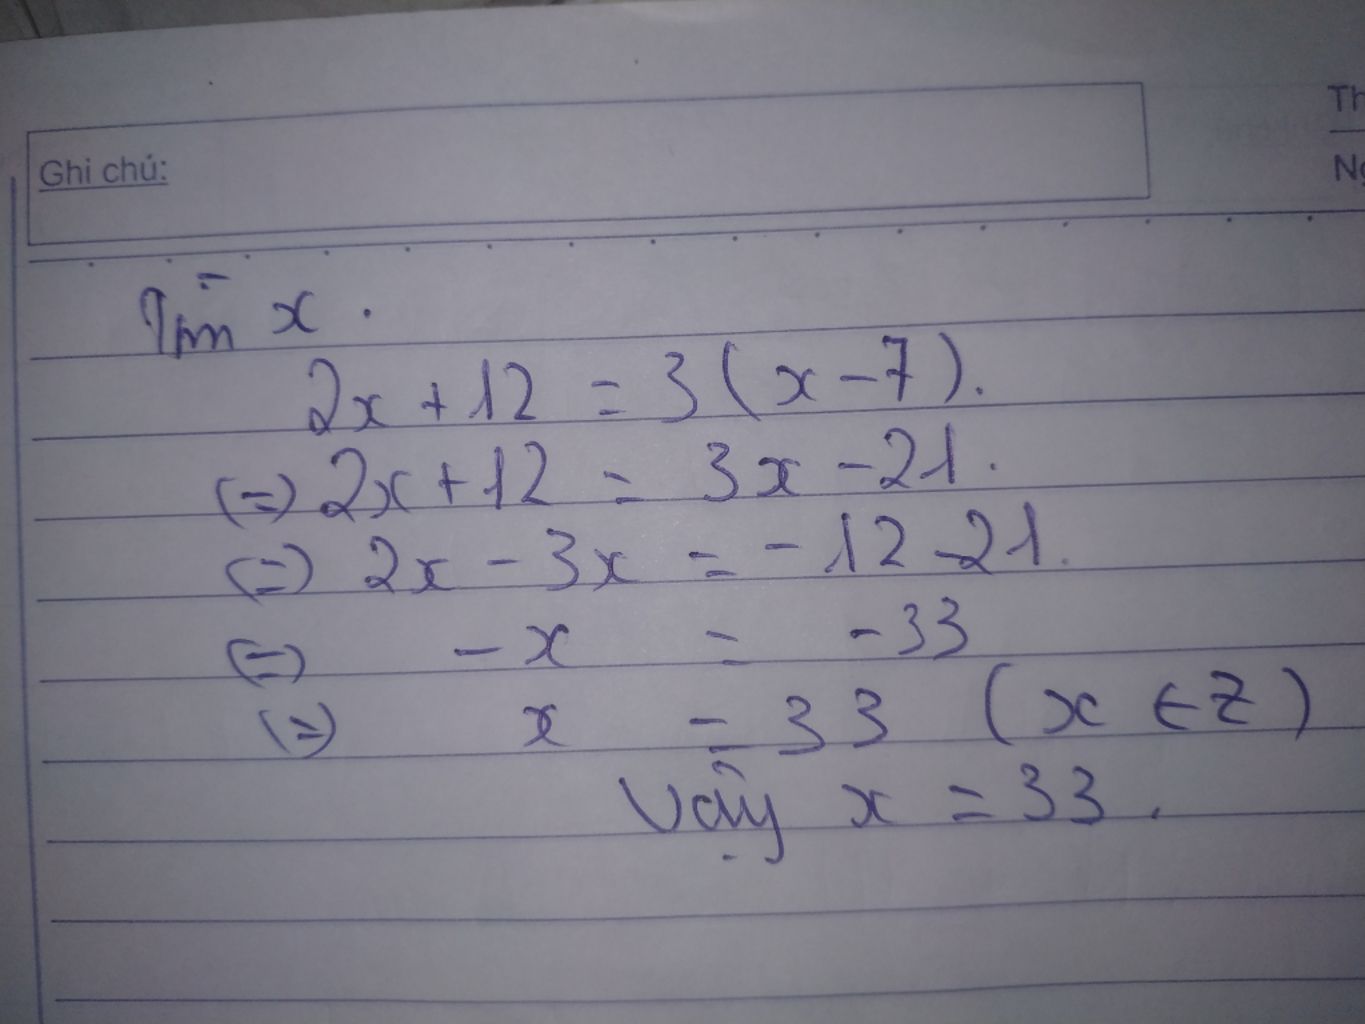 Ghi chú:
Th
Ng
Tìm x.
2x + 12 = 3(x - 7).
(=) 2x + 12 = 3x - 21.
(=) 2x - 3x = - 12 - 21.
(=) - x = - 33
(=) x = 33 (x ∈ Z)
Vậy x = 33.